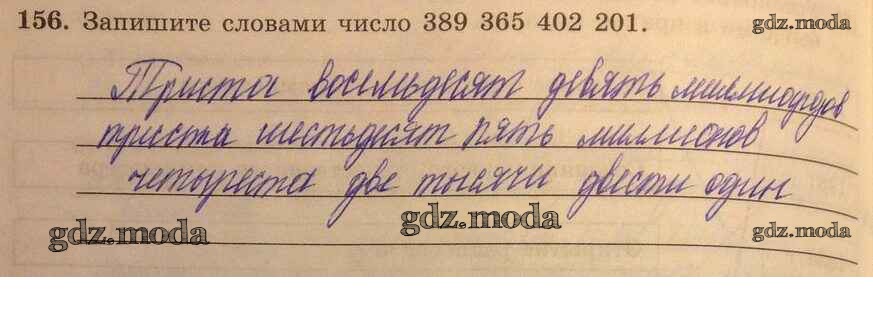 156. Запишите словами число 389 365 402 201.
gdz.moda
Триста восемьдесят девять миллиардов
триста шестьдесят пять миллионов
четыреста две тысячи двести один
gdz.moda
gdz.moda
gdz.moda